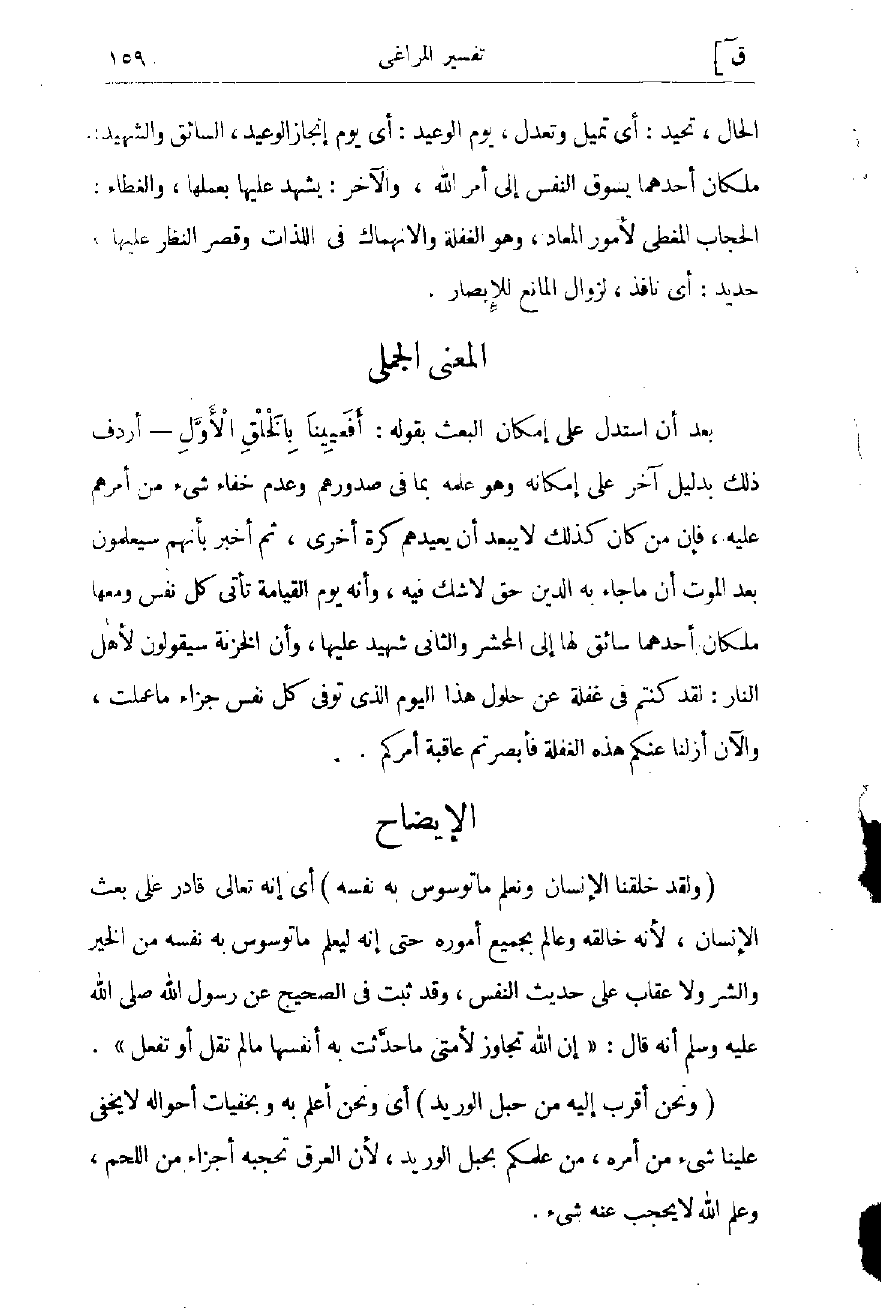 ق] تفسير المراغى ١٥٩
الحال ، تحيد : أى تميل وتعدل ، يوم الوعيد : أى يوم إنجازالوعيد ، السائق والشهيد :
ملكان أحدهما يسوق النفس إلى أمر الله ، والآخر : يشهد عليها بعملها ، والغطاء :
الحجاب المغطى لأمور المعاد ، وهو الغفلة والانهماك فى اللذات وقصر النظر عليها ،
حديد : أى نافذ ، لزوال المانع للإبصار .
المعنى الجملى
بعد أن استدل على إمكان البعث بقوله : أَفَعَيِينَا بِالْخَلْقِ الْأَوَّلِ — أردف
ذلك بدليل آخر على إمكانه وهو علمه بما فى صدورهم وعدم خفاء شىء من أمرهم
عليه ، فإن من كان كذلك لايبعد أن يعيدهم كرة أخرى ، ثم أخبر بأنهم سيعلمون
بعد الموت أن ماجاء به الدين حق لاشك فيه ، وأنه يوم القيامة تأتى كل نفس ومعها
ملكان أحدهما سائق لها إلى المحشر والثانى شهيد عليها، وأن الخزنة سيقولون لأهل
النار : لقد كنتم فى غفلة عن حلول هذا اليوم الذى توفى كل نفس جزاء ماعملت ،
والآن أزلنا عنكم هذه الغفلة فأبصرتم عاقبة أمركم .
الإيضاح
( ولقد خلقنا الإنسان ونعلم ماتوسوس به نفسه ) أى إنه تعالى قادر على بعث
الإنسان ، لأنه خالقه وعالم بجميع أموره حتى إنه ليعلم ماتوسوس به نفسه من الخير
والشر ولا عقاب على حديث النفس ، وقد ثبت فى الصحيح عن رسول الله صلى الله
عليه وسلم أنه قال : « إن الله تجاوز لأمتى ماحدَّثت به أنفسها مالم تقل أو تفعل » .
( ونحن أقرب إليه من حبل الوريد ) أى ونحن أعلم به وبخفيات أحواله لايخفى
علينا شىء من أمره ، من علمكم بحبل الوريد ، لأن العرق تحجبه أجزاء من اللحم ،
وعلم الله لايحجب عنه شىء .